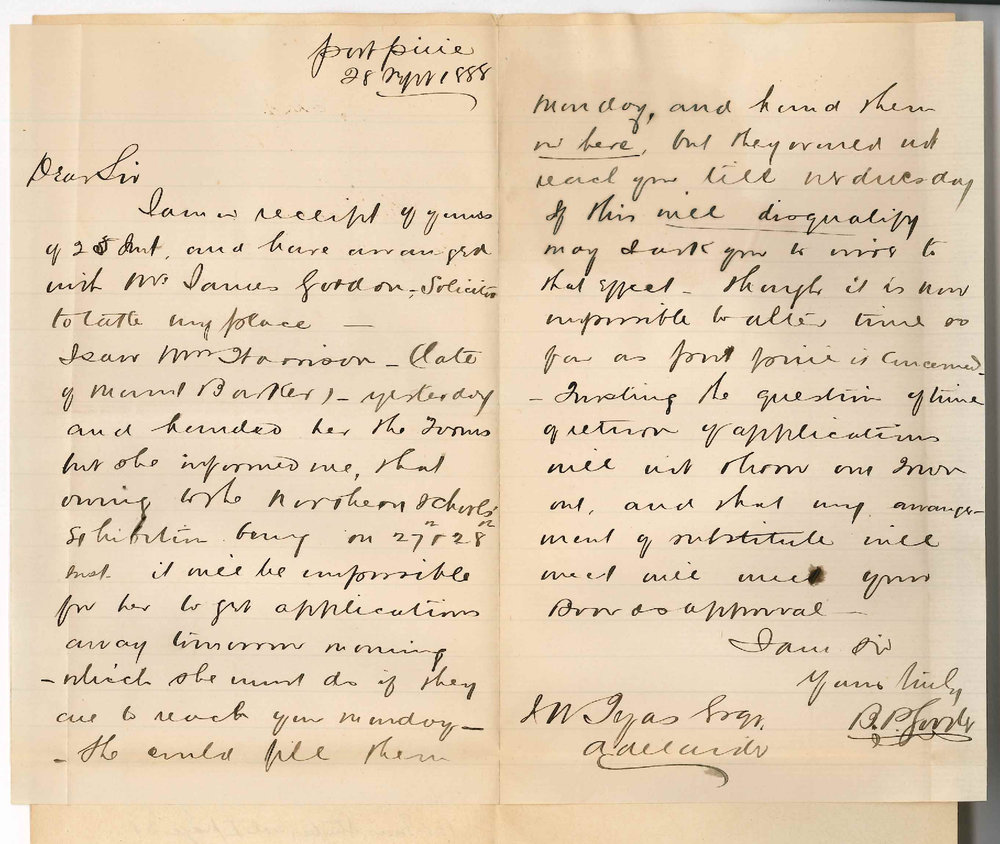 Port Pirie
28 Sept 1888
Dear Sir
I am in receipt of yours
of 25 Inst, and have arranged
with Mr James Gordon, Solicitor
to take my place —
I saw Mrs Harrison – (late
of Mount Barker) – yesterday
and handed her the Forms
but she informed me, that
owing to the Northern Schools'
Exhibition being on 27th & 28th
Inst. it will be impossible
for her to get applications
away tomorrow morning
– which she must do if they
are to reach you Monday –
– She could fill them
Monday, and hand them
in here, but they would not
reach you till Wednesday
If this will disqualify
may I ask you to wire to
that effect – though it is now
impossible to alter time so
far as Port Pirie is concerned –
– Trusting the question of time
of return of applications
will not throw our Town
out, and that my arrange-
ment of substitute will
meet will meet your
Boards approval –
I am Sir
Yours truly
J W Tyas Esqr,
Adelaide